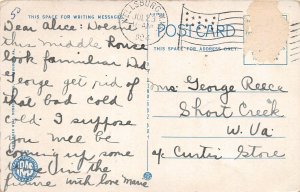 THIS SPACE FOR WRITING MESSAGES
POST CARD
THIS SPACE FOR ADDRESS ONLY
LLSBURG
JUL
Dear Alice: Doesn't
this middle house
look familiar Did
George get rid of
that bad cold
cold: I suppose
you will be
coming up some
in the
future with love
Mrs. George Reece
Short Creek
W. Va
c/o Curtis Store